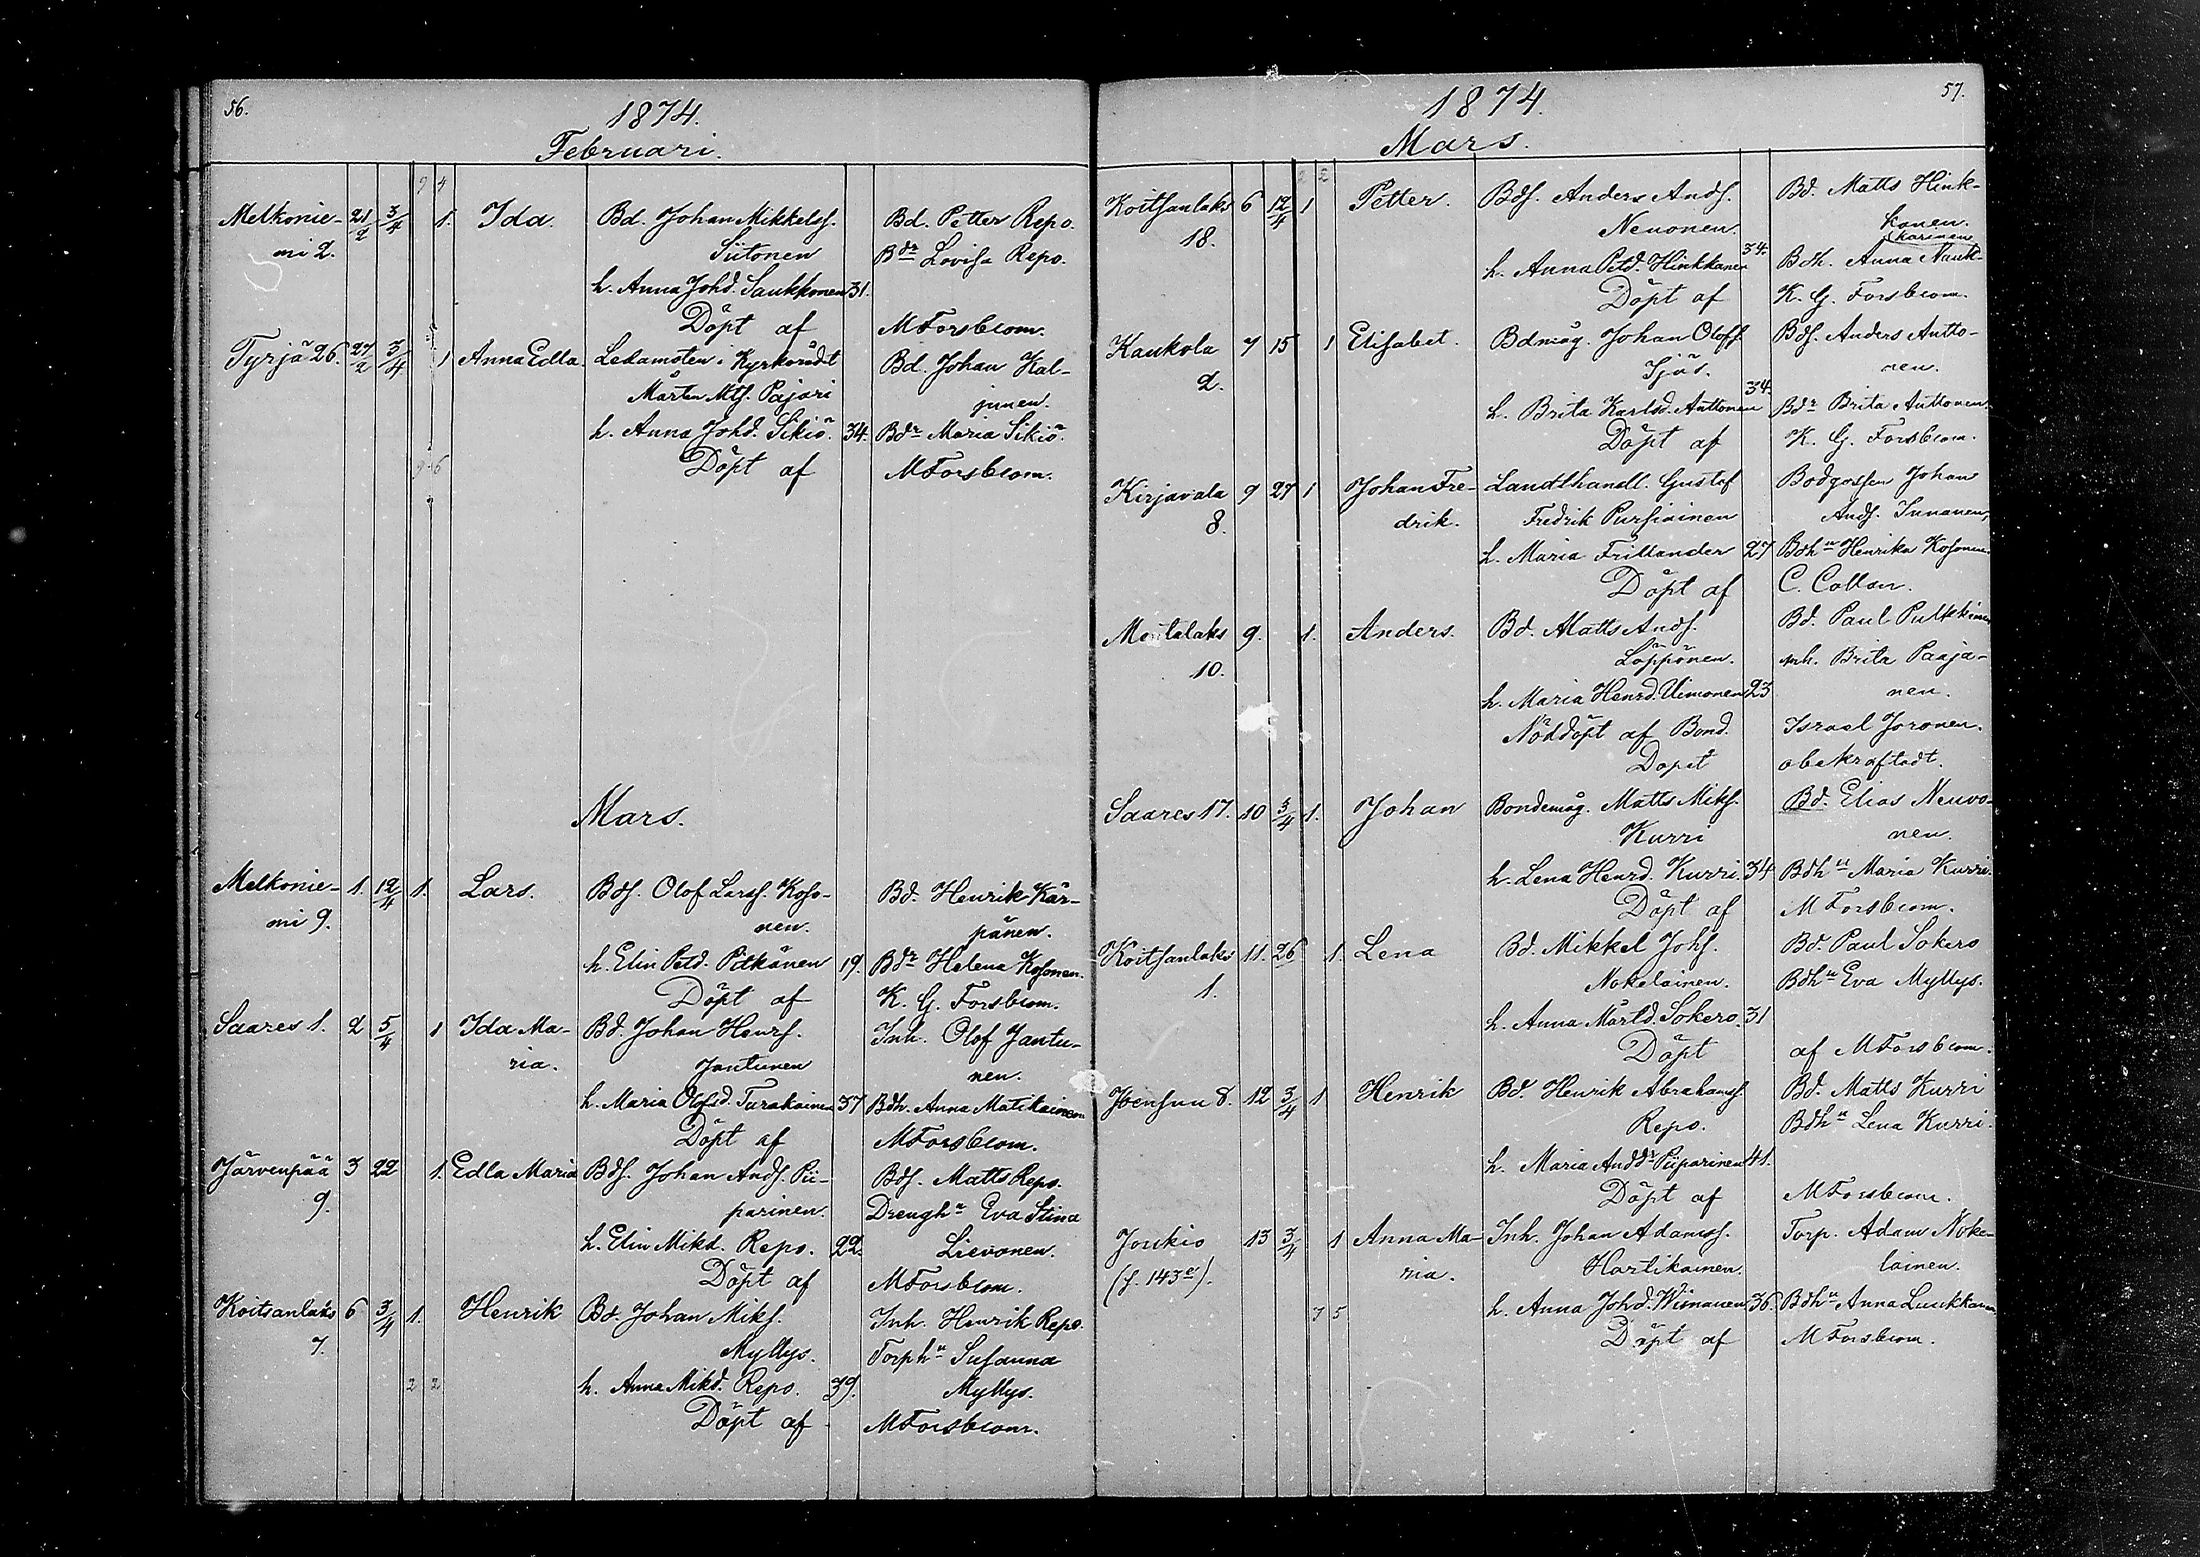 56.
1874.
Februari.
9 4
Melkonie- 21/2 3/4 1. Ida. Bd. Johan Mikkelss. Bd. Petter Repo.
mi 2. Siitonen Bdr Lovisa Repo.
h. Anna Johd. Saukkonen 31.
Döpt af MForsbom.
Tyrjä 26. 27/2 3/4 1 Anna Edla. Ledamoten i Kyrkorådet Bd. Johan Kal-
Mårten Mts. Pajari junen.
h. Anna Johd. Sikiö. 34. Bdr Maria Sikiö.
9 6 Döpt af MForsbom.
Mars.
Melkonie- 1. 12/4 1. Lars. Bds. Olof Larss. Koso- Bd. Henrik Kär-
mi 9. nen. pänen.
h. Elin Petd. Pitkänen 19. Bdr Helena Kosonen.
Döpt af K. G. Forsbom.
Saares 1. 2 5/4 1 Ida Ma- Bd. Johan Henrs. Inh. Olof Jantu-
ria. Jantunen nen.
h. Maria Olofsd. Turakainen 37 Bdh. Anna Matikainen
Döpt af MForsbom.
Järvenpää 3 22 1. Edla Maria Bds. Johan Ands. Pii- Bds. Matts Repo.
9. parinen. Drengh Eva Stina
h. Elin Mikd. Repo. 22. Lievonen.
Döpt af MForsbom.
Koitsanlaks 6 3/4 1. Henrik Bd. Johan Miks. Inh. Henrik Repo.
7. Myllys. Torph Susanna
2 2 h. Anna Mikd. Repo. 39. Myllys.
Döpt af MForsbom.
57.
1874.
Mars.
2 2
Koitsanlaks 6 12/4 1 Petter. Bds. Anders Ands. Bd. Matts Hink-
18. Nenonen. konen.
karinen
h. Anna Petd. Hinkkanen 34. Bdh. Anna Nauk-
Döpt af K. G. Forsbom.
Kaukola 7 15 1 Elisabet. Bdmåg. Johan Olofs. Bds. Anders Antto-
2. Sjös. nen.
h. Brita Karlsd. Anttonen 34. Bdr Brita Anttonen.
Döpt af K. G. Forsbom.
Kirjavala 9 27 1 Johan Fre- Landthandl. Gustaf Bodgossen Johan
8. drik. Fredrik Pursiainen Ands. Innanen,
h. Maria Frilander 27 Bdh Henrika Kosonen.
Döpt af C. Collan.
laks 9. 1. Anders. Bd. Matts Ands. Bd. Paul Pulkkinen
10. Löppönen. inh. Brita Paaja-
h. Maria Henrd. Uimonen 23 nen.
Nöddöpt af Bond. Israel Joronen.
Dopet obekräftadt.
Saares 17. 10 3/4 1. Johan Bondemåg. Matts Miks. Bd. Elias Neuvo-
Kurri nen.
h. Lena Henrd. Kurri. 34 Bdh Maria Kurri.
Döpt af MForsbom.
Koitsanlaks 11. 26 1. Lena Bd. Mikkel Johs. Bd. Paul Sokero
1. Nokelainen. Bdh Eva Myllys.
h. Anna Mårtd. Sokero. 31
Döpt af MForsbom.
Joensuu 8. 12 3/4 1 Henrik Bd. Henrik Abrahamss. Bd. Matts Kurri
Repo. Bdh Lena Kurri.
h. Maria Andd. Piiparinen 41.
Döpt af MForsbom.
Joukio 13 3/4 1 Anna Ma- Inh. Johan Adamss. Torp. Adam Noke-
(f. 143 ). ria. Hartikainen. lainen.
7 5 h. Anna Johd. 36. Bdh Anna Luukkanen
Döpt af MForsbom.